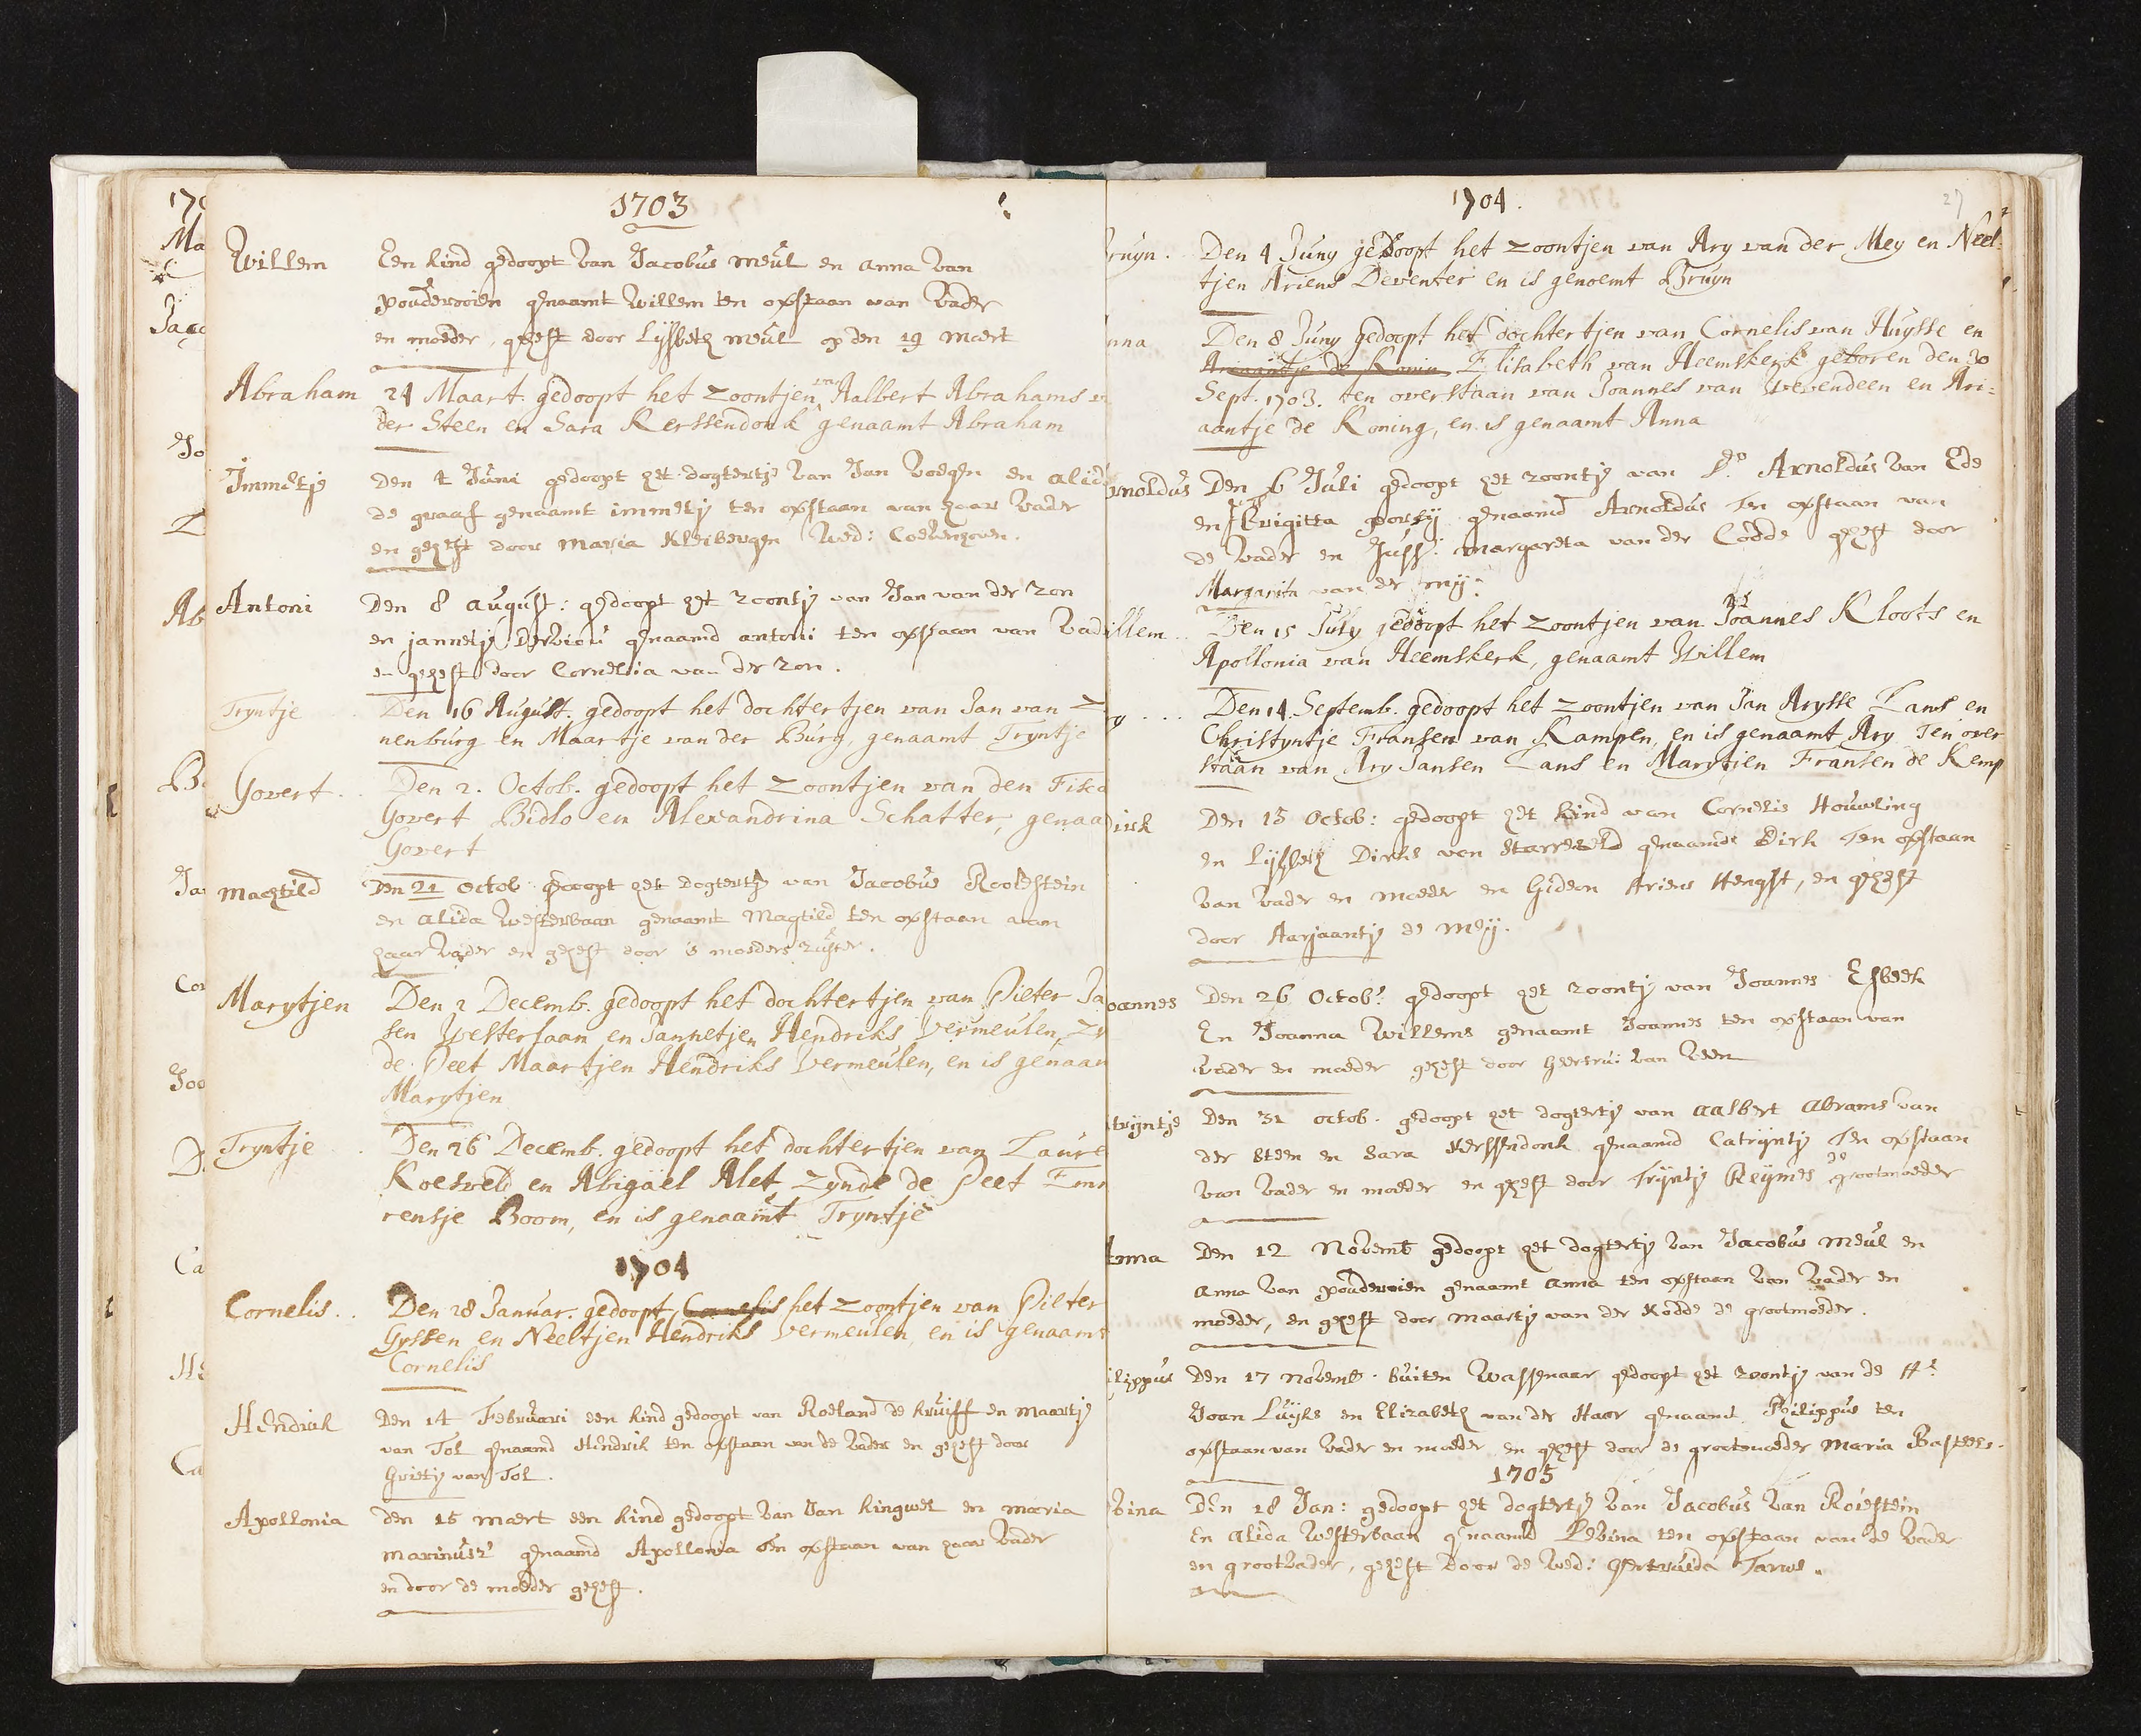 1703
Willem Een kind gedoopt van Jacobus meul en anna van
pouderoien genaamt willem ten opstaan van vader
en moeder, geheft door Lijsbeth meul op den 19 maert
Abraham 24 Maart. gedoopt het zoontjen van Aalbert Abrahams v
der Steen en Sara Kerssendonk genaamt Abraham
Immetje Den 4 Juni gedoopt het dogtertje van Jan voegen en alid
de graaf genaamt immetje ten opstaan van haar vader
en geheft door maria Kleibergen wed: Coevenhoven.
Antoni Den 8 august: gedoopt het zoontje van Jan van der zon
en jannetje genaamd antoni ten opstaan van vad
en geheft door Cornelia van der zon.
Tryntje Den 16 August. gedoopt het dochtertjen van Jan van Z
nenburg en Maartje van der Burg, genaamt Tryntje
Govert.. Den 2. Octob. gedoopt het zoontjen van den Fisca
Govert Bidlo en Alexandrina Schatter, genaa
Govert
machtild Den 21 octob gedoopt het dogtertje van Jacobus Roolestein
en alida westerbaan genaamt Magtild ten opstaan van
haar vader en geheft door 's moeders zuster.
Marytjen Den 2 Decemb. gedoopt het dochtertjen van Pieter Ja
sen Westerlaan en Jannetjen Hendriks Vermeulen, zy
de Peet Maartjen Hendriks Vermeulen, en is genaam
Marytjen
Tryntje. Den 26 Decemb. gedoopt het dochtertjen van Laure
Koesveld en Abigael Alet zynde de Peet Emm
rensje Boom, en is genaamt Tryntje
1704
Cornelis.. Den 28 Januar. gedoopt, Cornelis het zoontjen van Pieter
Gyssen en Neeltjen Hendriks Vermeulen en is genaamt
Cornelis
Hendrik Den 14 Februari een kind gedoopt van Roeland de kruiff en maartje
van Tol genaamd Hendrik ten opstaan van de vader en geheft door
Grietje van Tol.
Apollonia den 15 maert een kind gedoopt van Jan kingwel en maria
marinusz genaamd Apollonia ten opstaan van haar vader
en door de moeder geheft.
1704.
27
ruyn. Den 4 Juny gedoopt het zoontjen van Ary van der Mey en Neel:
tjen Ariens Deventer en is genoemt Bruyn
nna Den 8 Juny gedoopt het dochtertjen van Cornelis van Huysse en
Ariaantje de Konin Elisabeth van Heemskerk geboren den 30
Sept. 1703. ten overstaan van Joannes van Wevendeen en Ari=
aantje de Koning, en is genaamt Anna
rnoldus Den 6 Juli gedoopt het zoontje van Do. Arnoldus van Ede
en Brigitta genaamd Arnoldus ten opstaan van
de vader en Juff: margareta van der Codde geheft door
Margarita van der mij.
illem.. Den 15 July gedoopt het zoontjen van Joannes Kloots en
Apollonia van Heemskerk, genaamt Willem
ry... Den 14. Septemb. gedoopt het zoontjen van Jan Arysse Lans en
Christyntje Fransen van Kampen, en is genaamt Ary Ten over
staan van Ary Jansen Lans en Marytjen Fransen de Kemp
irck Den 15 octob: gedoopt het kind van Cornelis Houwling
en Lijsbeth Dirks van Starreveld genaamde Dirk ten opstaan
van vader en moeder en Gideon Ariens Hengst, en geheft
door Aarjaantje de Meij.
oannes Den 26 Octobr. gedoopt het zoontje van Joannes Esbeek
En Joanna Willems genaamt Joannes ten opstaan van
vader en moeder geheft door Geertrui van veen
trijntje Den 31 octob. gedoopt het dogtertje van aalbert abrams van
der steen en Sara Kerssendonk genaamd Catrijntje Ten opstaan
van vader en moeder en geheft door Trijntje Reijmes de grootmoeder
Anna Den 12 Novemb gedoopt het dogtertje van Jacobus meul en
anna van pouderoien genaamt anna ten opstaan van vader en
moeder, en geheft door maartje van der Kodde de grootmoeder.
ilippus Den 17 novemb. buiten wassenaar gedoopt het zoontje van de Hr.
Joan Luijks en Elizabeth van der Haar genaamt Philippus ten
opstaan van vader en moeder en geheft door de grootmoeder maria Basteels.
1705
vina Den 18 Jan: gedoopt het dogtertje van Jacobus van Roiestein
En alida westerbaan genaamd Levina ten opstaan van de vader
en grootvader, geheft door de wed: Gertruida Tarwe.